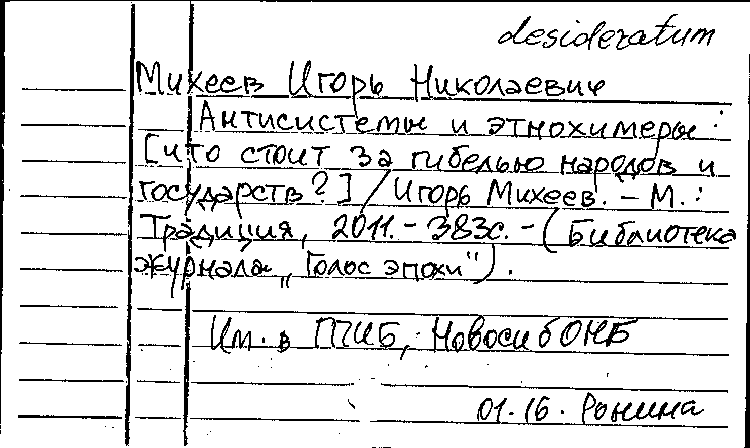 desideratum
Михеев Игорь Николаевич
Антисистемы и этнохимеры:
[что стоит за гибелью народов и
государств?] / Игорь Михеев. - М.:
Традиция, 2011.- 383с. - (Библиотека
журнала „Голос эпохи").
Им. в ГПИБ, НовосибОНБ
01.16. Ронина